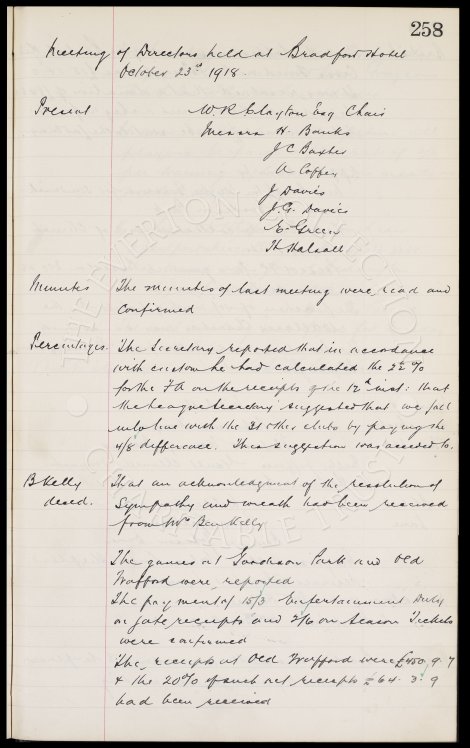 258
Meeting of Directors held at Bradford Hotel
October 23rd 1918.
Present W R Clayton Esq Chair
Messrs H. Banks
J C Baxter
A Coffey
J Davies
J. G. Davies
E. Green
H Halsall
Minutes The minutes of last meeting were read and
confirmed
Percentages. The Secretary reported that in accordance
with custom he had calculated the 2½%
for the FA on the receipts of the 12th inst: that
the League Secretary suggested that we fall
into line with the 21 other clubs by paying the
4/8 difference. This suggestion was acceded to.
B Kelly That an acknowledgment of the resolution of
decd. Sympathy and wreath had been received
from Mrs Ben Kelly
The games at Goodison Park and Old
Trafford were reported
The payment of 15/3 Entertainment Duty
on gate receipts and 2/6 on Season Tickets
were confirmed
The receipts at Old Trafford were £450. 9. 7
& the 20% of such net receipts = 64. 3. 9
had been received
THE EVERTON COLLECTION
CHARITABLE TRUST